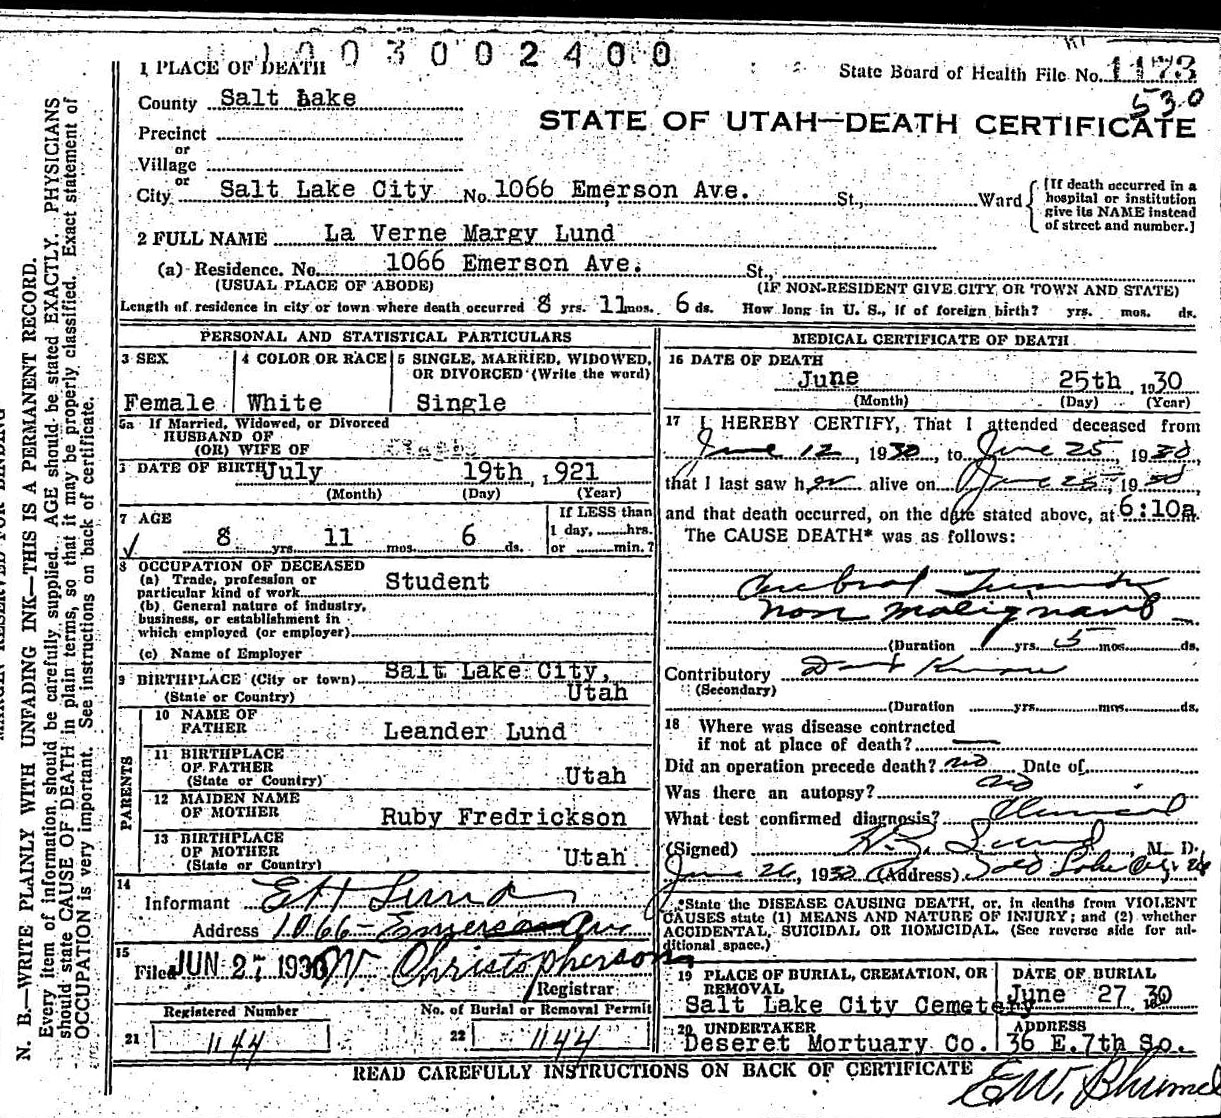 1003002400
1 PLACE OF DEATH
State Board of Health File No. 1173
530
County Salt Lake
STATE OF UTAH—DEATH CERTIFICATE
Precinct
or
Village
or
City Salt Lake City No. 1066 Emerson Ave. St., Ward
[If death occurred in a
hospital or institution
give its NAME instead
of street and number.]
2 FULL NAME La Verne Margy Lund
(a) Residence. No. 1066 Emerson Ave. St.,
(USUAL PLACE OF ABODE) (IF NON-RESIDENT GIVE CITY OR TOWN AND STATE)
Length of residence in city or town where death occurred 8 yrs. 11 mos. 6 ds. How long in U. S., if of foreign birth? yrs. mos. ds.
PERSONAL AND STATISTICAL PARTICULARS
3 SEX
Female
4 COLOR OR RACE
White
5 SINGLE, MARRIED, WIDOWED,
OR DIVORCED (Write the word)
Single
5a If Married, Widowed, or Divorced
HUSBAND OF
(OR) WIFE OF
DATE OF BIRTH July 19th, 1921
(Month) (Day) (Year)
7 AGE
8 yrs. 11 mos. 6 ds.
If LESS than
1 day, hrs.
or min.?
8 OCCUPATION OF DECEASED
(a) Trade, profession or
particular kind of work Student
(b) General nature of industry,
business, or establishment in
which employed (or employer)
(c) Name of Employer
9 BIRTHPLACE (City or town) Salt Lake City,
(State or Country) Utah
PARENTS
10 NAME OF
FATHER Leander Lund
11 BIRTHPLACE
OF FATHER
(State or Country) Utah
12 MAIDEN NAME
OF MOTHER Ruby Fredrickson
13 BIRTHPLACE
OF MOTHER
(State or Country) Utah
14
Informant E H Lund
Address 1066 - Emerson Ave
15
Filed JUN 27 1930 W. Christopherson
Registrar
Registered Number
21 1144
No. of Burial or Removal Permit
22 1144
MEDICAL CERTIFICATE OF DEATH
16 DATE OF DEATH
June 25th, 1930
(Month) (Day) (Year)
17 I HEREBY CERTIFY, That I attended deceased from
June 12, 1930, to June 25, 1930,
that I last saw her alive on June 25, 1930,
and that death occurred, on the date stated above, at 6:10a m.
The CAUSE DEATH* was as follows:
Cerebral Tumor
non malignant
(Duration yrs. 5 mos. ds.
Contributory
(Secondary)
(Duration yrs. mos. ds.
18 Where was disease contracted
if not at place of death? —
Did an operation precede death? no Date of
Was there an autopsy? no
What test confirmed diagnosis? Clinical
(Signed) Lund, M. D.
June 26, 1930 (Address) Salt Lake City, Ut
*State the DISEASE CAUSING DEATH, or, in deaths from VIOLENT
CAUSES state (1) MEANS AND NATURE OF INJURY; and (2) whether
ACCIDENTAL, SUICIDAL OR HOMICIDAL. (See reverse side for ad-
ditional space.)
19 PLACE OF BURIAL, CREMATION, OR
REMOVAL
Salt Lake City Cemetery
DATE OF BURIAL
June 27 1930
20 UNDERTAKER
Deseret Mortuary Co.
ADDRESS
36 E. 7th So.
READ CAREFULLY INSTRUCTIONS ON BACK OF CERTIFICATE
N. B.—WRITE PLAINLY WITH UNFADING INK—THIS IS A PERMANENT RECORD.
Every item of information should be carefully supplied. AGE should be stated EXACTLY. PHYSICIANS
should state CAUSE OF DEATH in plain terms, so that it may be properly classified. Exact statement of
OCCUPATION is very important. See instructions on back of certificate.
MARGIN RESERVED FOR BINDING